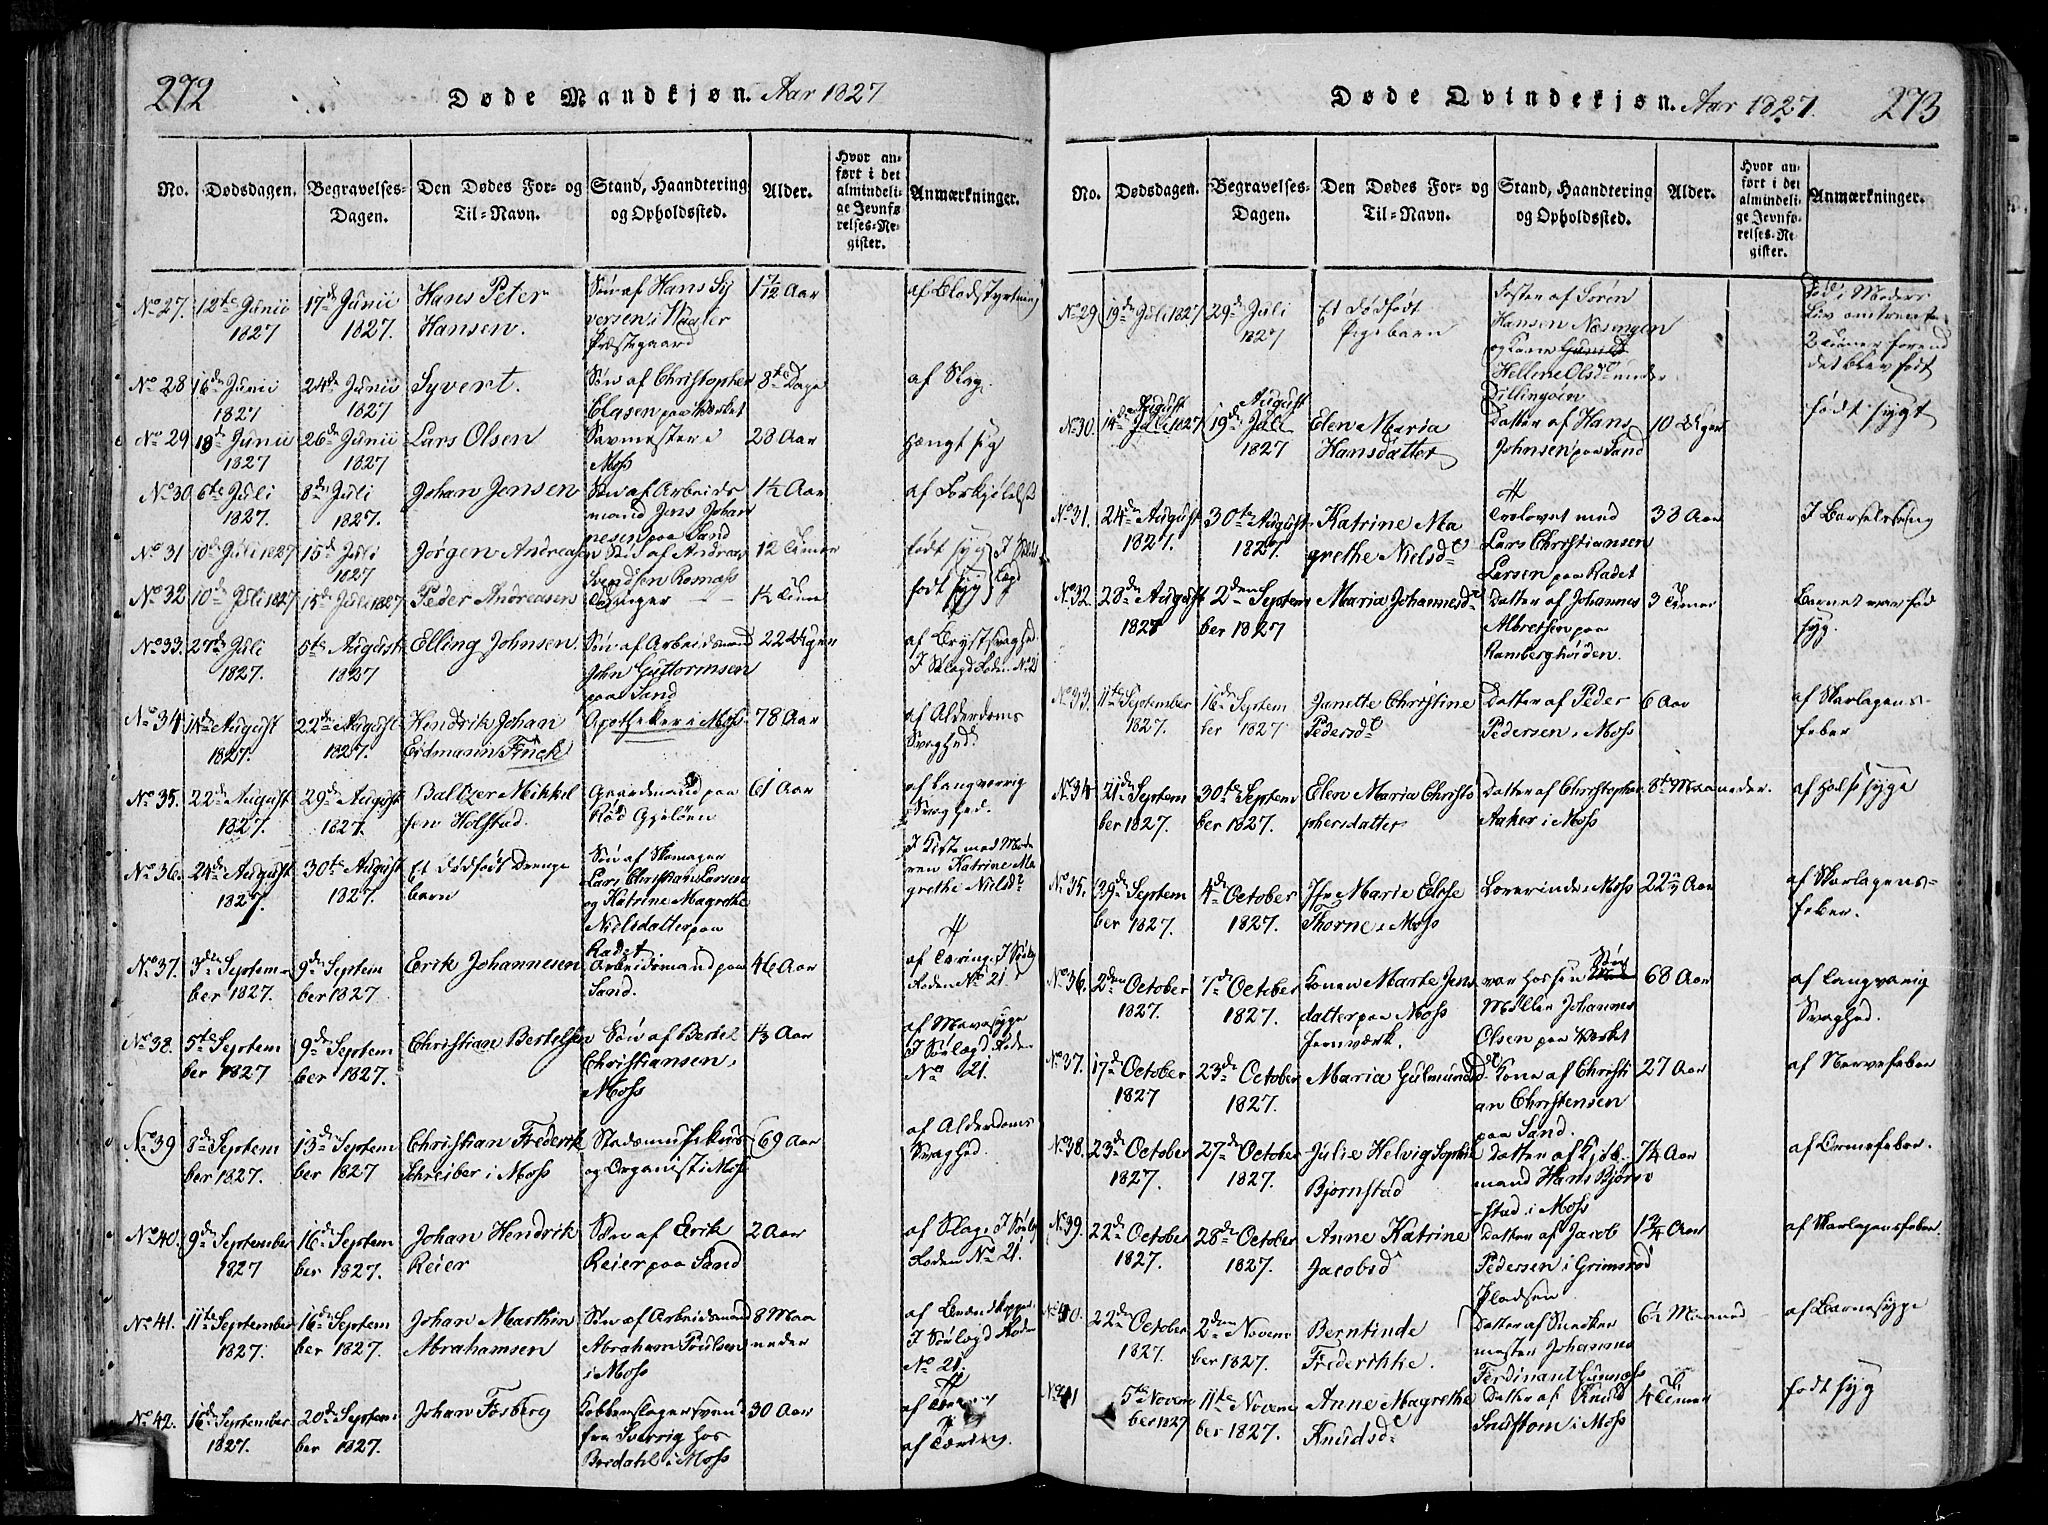 272
Døde Mandkjøn. Aar 1827
No.
Dødsdagen.
Begravelses-
Dagen.
Den Dødes For- og
Til-Navn.
Stand, Haandtering
og Opholdssted.
Alder.
Hvor an-
ført i det
almindeli-
ge Jevnfø-
relses-Re-
gister.
Anmærkninger.
No 27. 12te Junii 1827
17de Junii 1827.
Hans Peter
Hansen.
Søn af Hans Sy
versen i
Præstegaard
1 7/12 Aar
af Blodstyrtning
No 28 16de Junii 1827
24de Junii 1827
Syvert.
Søn af Christopher
Clasen paa Værket
8te Dage
af Slag.
No 29 18de Junii 1827
26de Junii 1827
Lars Olsen
Savmester i
Moss
28 Aar
hængt sig
No 30 6te Juli 1827.
8de Juli 1827.
Johan Jensen
Søn af Arbeids
mand Jens Johan
nesen paa Sand
1½ Aar
af Forkjølelse
No 31 10de Juli 1827
15de Juli 1827
Jørgen Andreasen
Søn af Andreas
Svendsen Rosnæs
12 Timer
født syg
No 32 10de Juli 1827
15de Juli 1827
Peder Andreasen
Tvinger
1½ Time
født syg
No 33. 27de Juli 1827.
5te August 1827
Elling Johnsen.
Søn af Arbeidsmand
John Guttormsen
paa Sand
22 Uger
af Brystsvaghed.
No 34 August 1827.
22de August 1827.
Hendrik Johan
Erdmann Frick
Apotheker i Moss
78 Aar
af Alderdoms
Svaghed.
No 35. 22de August 1827.
29de August 1827.
Baltzer Mikkel
sen Holstad.
Gaardmand paa
Rød Gjeløen
61 Aar
af langvarig
Svaghed.
No 36. 24de August 1827.
30te August 1827.
Et dødfødt Drenge
barn
Søn af Skomager
Lars Christian Larsen
og Katrine Magrethe
Nielsdatter paa
Radet
I Kiste med Mode
ren Katrine Ma
grethe Nielsd.
No 37. 3de Septem-
ber 1827.
9de Septem
ber 1827.
Erik Johannesen
Arbeidsmand paa
Sand.
46 Aar
af Tæring.
No 21
No 38. 5te Septem
ber 1827
9de Septem
ber 1827.
Christian Bertelsen
Søn af Bertel
Christiansen,
Moss
1/3 Aar
af Mavesyge
No 21.
No 39 8de Septem
ber 1827.
13de Septem
ber 1827
Christian Frederik
Schreiber i Moss
Stadsmusikus
og Organist i Moss
69 Aar
af Alderdoms
Svaghed.
No 40. 9de September
1827
16de Septem
ber 1827.
Johan Hendrik
Reier
Søn af Erik
Reier paa Sand
2 Aar
af Slag.
No 21.
No 41. 11te September
1827.
16de Septem
ber 1827.
Johan Marthin
Abrahamsen
Søn af Arbeidsmand
Abraham Poulsen
i Moss
8 Maa
neder
No 21.
No 42. 16de September
1827.
20de Septem
ber 1827.
Johan Fosberg
Kobberslagersvend
fra Sverrig hos
Bredahl i Moss
30 Aar
af Tæring.
Døde Qvindekjøn. Aar 1827. 273
No.
Dødsdagen.
Begravelses-
Dagen.
Den Dødes For- og
Til-Navn.
Stand, Haandtering
og Opholdssted.
Alder.
Hvor an-
ført i det
almindeli-
ge Jevnfø-
relses-Re-
gister.
Anmærkninger.
No 29 19de Juli 1827
29de Juli 1827
Et dødfødt
Pigebarn
Foster af Søren
Hansen Næsengen
og Kone Gunild
Hellene Olsd under
Dillingøen
død i Moders
Liv omtrent
2 Timer førend
det blev født
No 30. 14de August Juli 1827
19de August Juli 1827
Elen Maria
Hansdatter
Datter af Hans
Johnsen paa Sand
10 Uger
født sygt
No 31. 24de August
1827.
30te August
1827.
Katrine Ma
grethe Nielsd
Trolovet med
Lars Christiansen
Larsen paa Radet
38 Aar
I Barselseng
No 32. 28de August
1827
2den Septem
ber 1827
Maria Johannesd
Datter af Johannes
Albretsen paa
Ramberghviden.
3 Timer
Barnet var fød
syg.
No 33. 11te September
1827.
16de Septem
ber 1827
Janette Christine
Pedersd
Datter af Peder
Pedersen i Moss
6 Aar
af Skarlagens-
feber
No 34 21de Septem
ber 1827.
30te Septem
ber 1827.
Elen Maria Christo
phersdatter
Datter af Christopher
Aaker i Moss
8te Maaneder.
af Halssyge
No 35. 29de Septem
ber 1827.
4de October
1827.
Jfr Marie Elise
Thorne i Moss
Lærerinde i Moss
22 Aar
af Skarlagens-
feber.
No 36. 2den October
1827.
7de October
1827.
Konen Marte Jens
datter paa Moss
Jernværk.
var hos sin Søn
Møller Johannes
Olsen paa Værket
68 Aar
af langvarig
Svaghed.
No 37. 17de October
1827
23de October
1827.
Maria Gulmunds
d Kone af Christi
an Christensen
paa Sand.
27 Aar
af Nervefeber
No 38. 23de October
1827.
27de October
1827.
Julie Helvig Sophie
Bjørnstad
Datter af Kjøb-
mand Hans Bjørn
stad i Moss
7¼ Aar
af Ormefeber.
No 39. 22de October
1827.
28de October
1827.
Anne Katrine
Jacobsd
Datter af Jacob
Pedersen i Grimsrød
Pladsen
1¾ Aar
af Skarlagensfeber.
No 40. 22de October
1827.
2den Novem
ber 1827.
Berntinde
Frederikke.
Datter af Snedker
mester Johannes
Ferdinant
6½ Maaned
af Barnesyge
No 41 5te Novem
ber 1827
11te Novem
ber 1827.
Anne Magrethe
Knudsd
Datter af Knud
i Moss
4 Timer
født syg